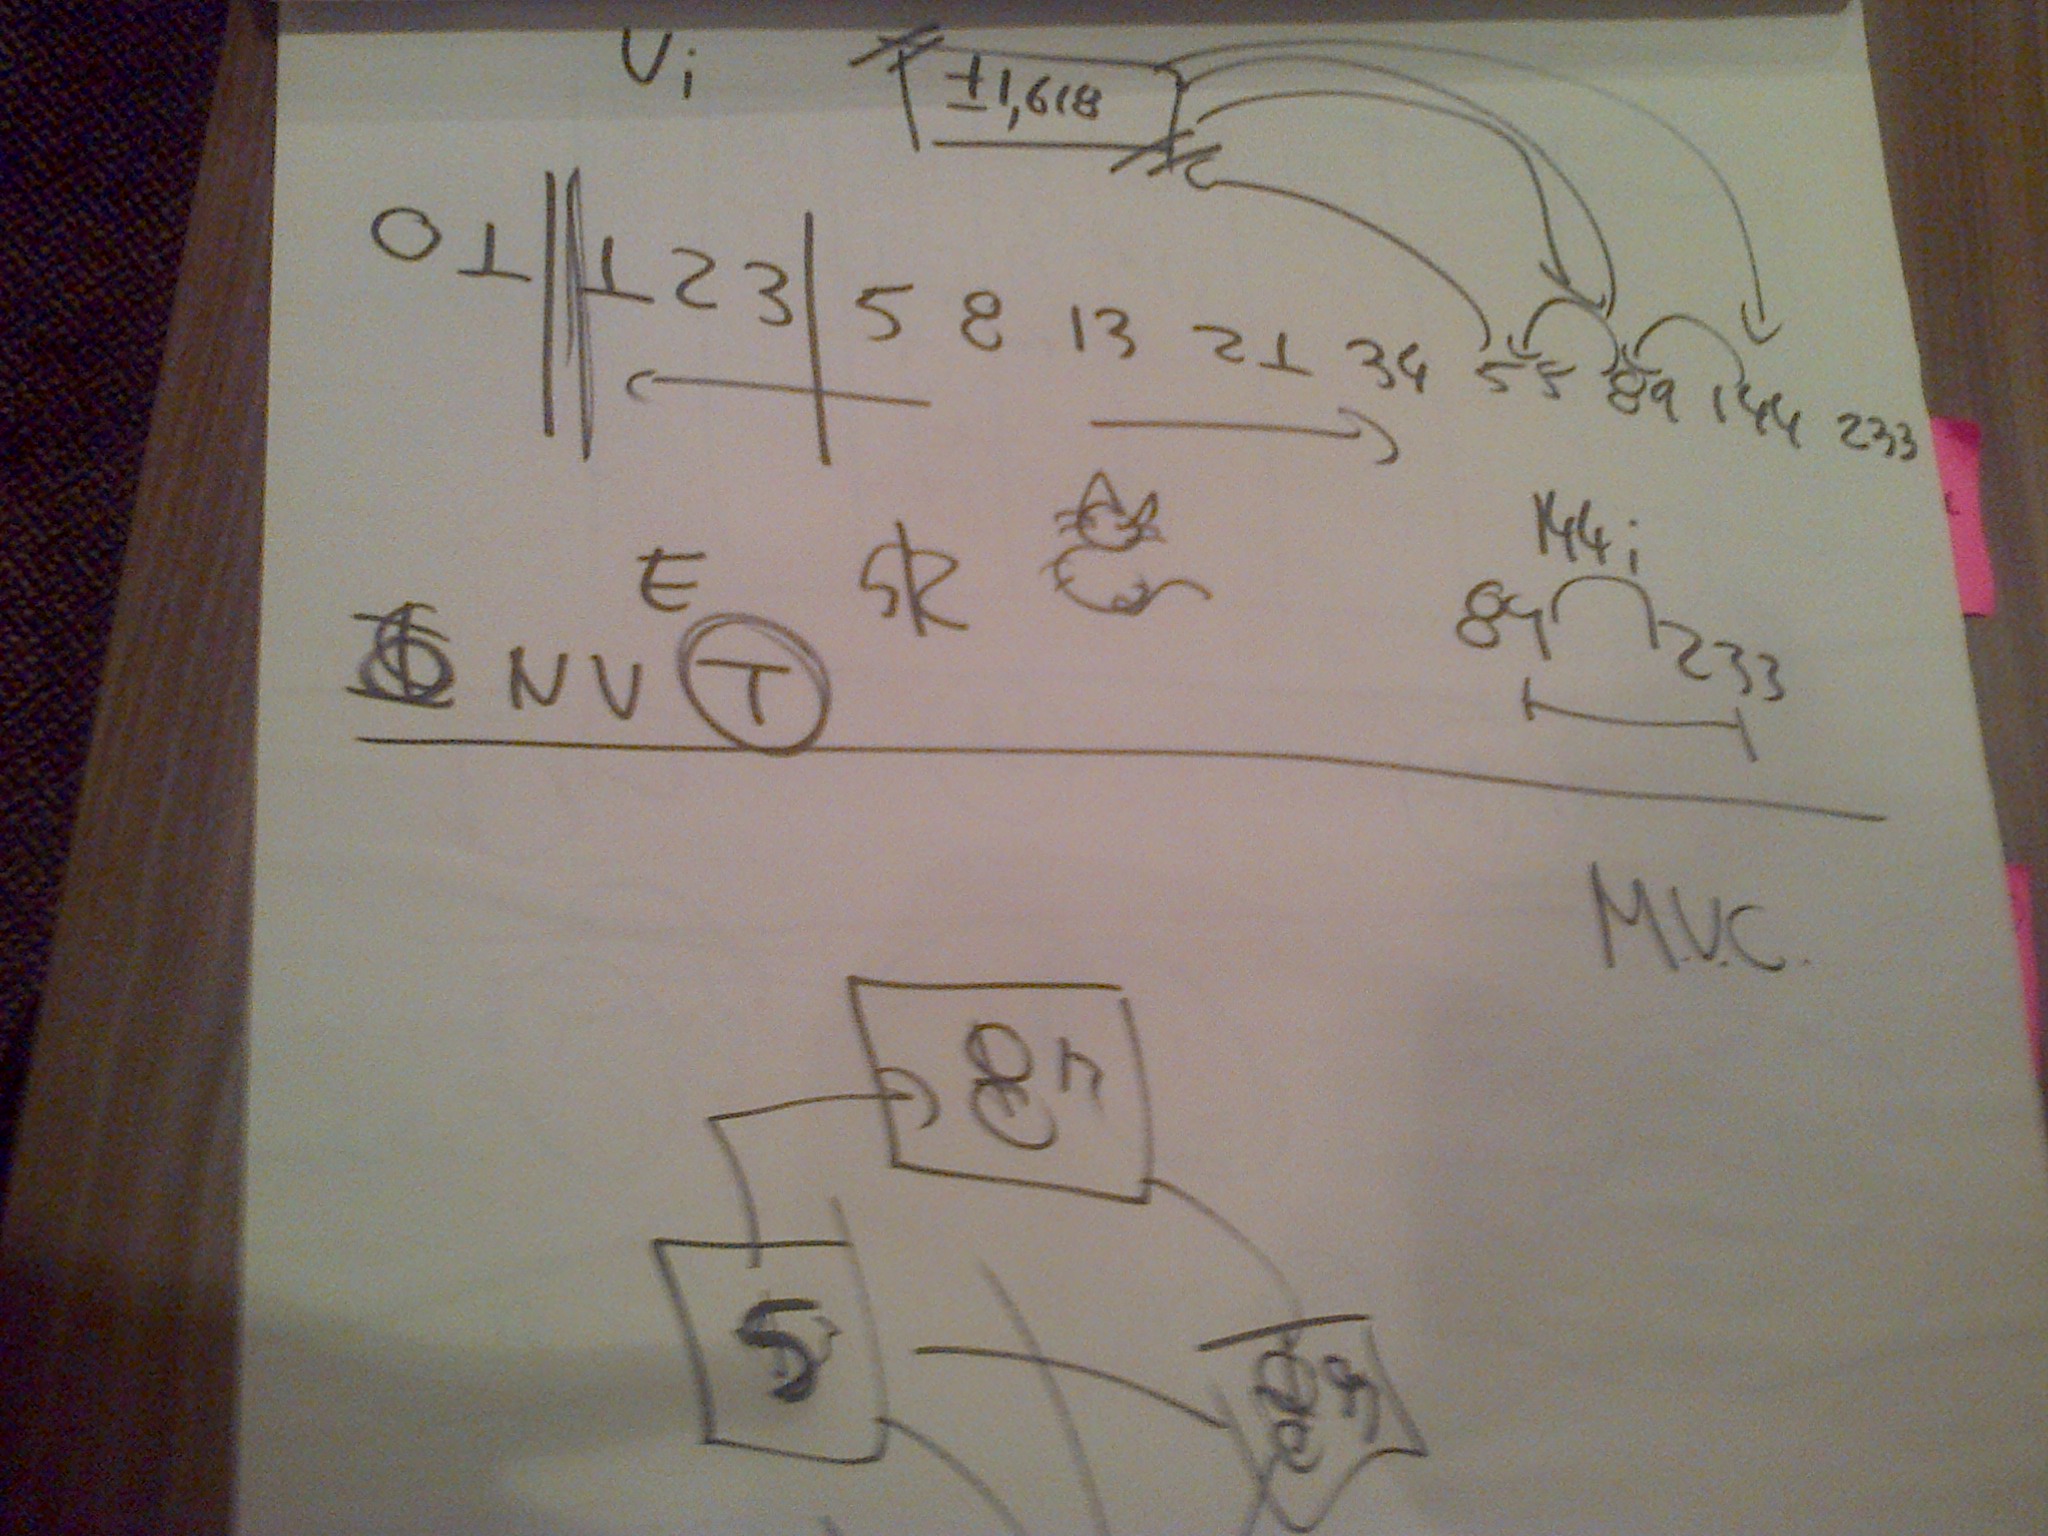 Vi ±1,618
0 1 1 2 3 5 8 13 21 34 55 89 144 233
144i
89 233
E
N V T
M.V.C.
5